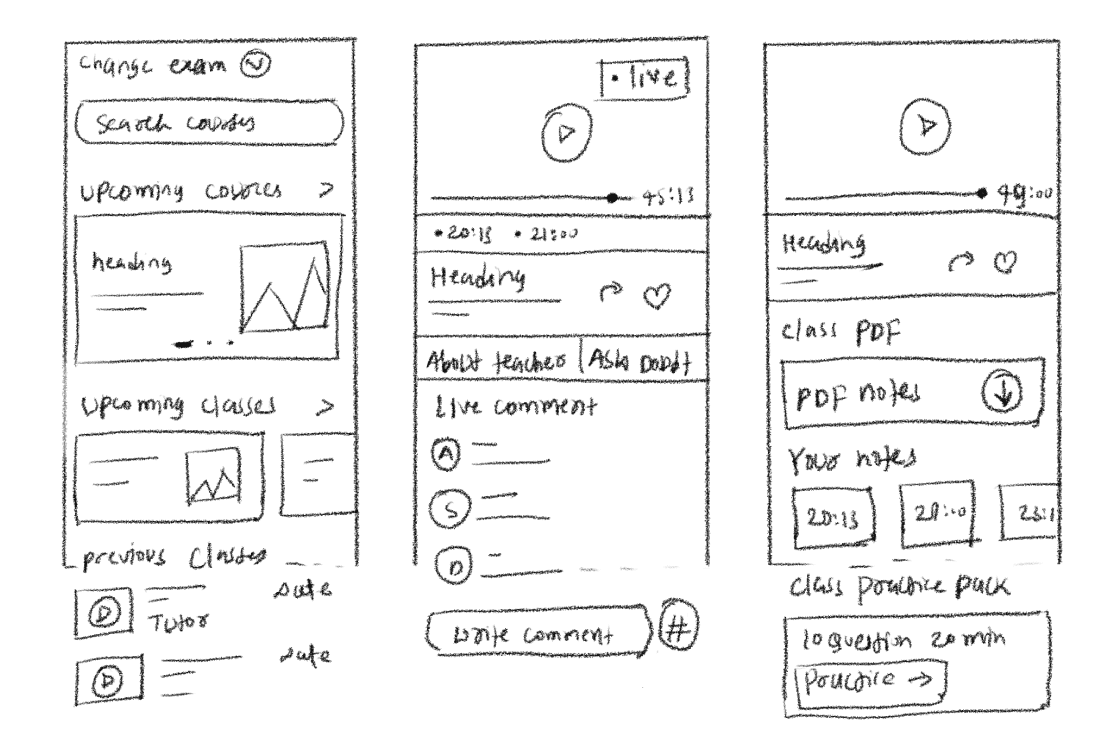 Change exam
Search courses
Upcoming courses >
heading
Upcoming classes >
previous classes
Date
Tutor
Date
• live
45:13
• 20:13 • 21:00
Heading
About teacher | Ask Doubt
Live comment
A
S
D
Write comment #
49:00
Heading
class PDF
PDF notes
Your notes
20:13 21:00 23:1
Class practice pack
10 question 20 min
Practice →